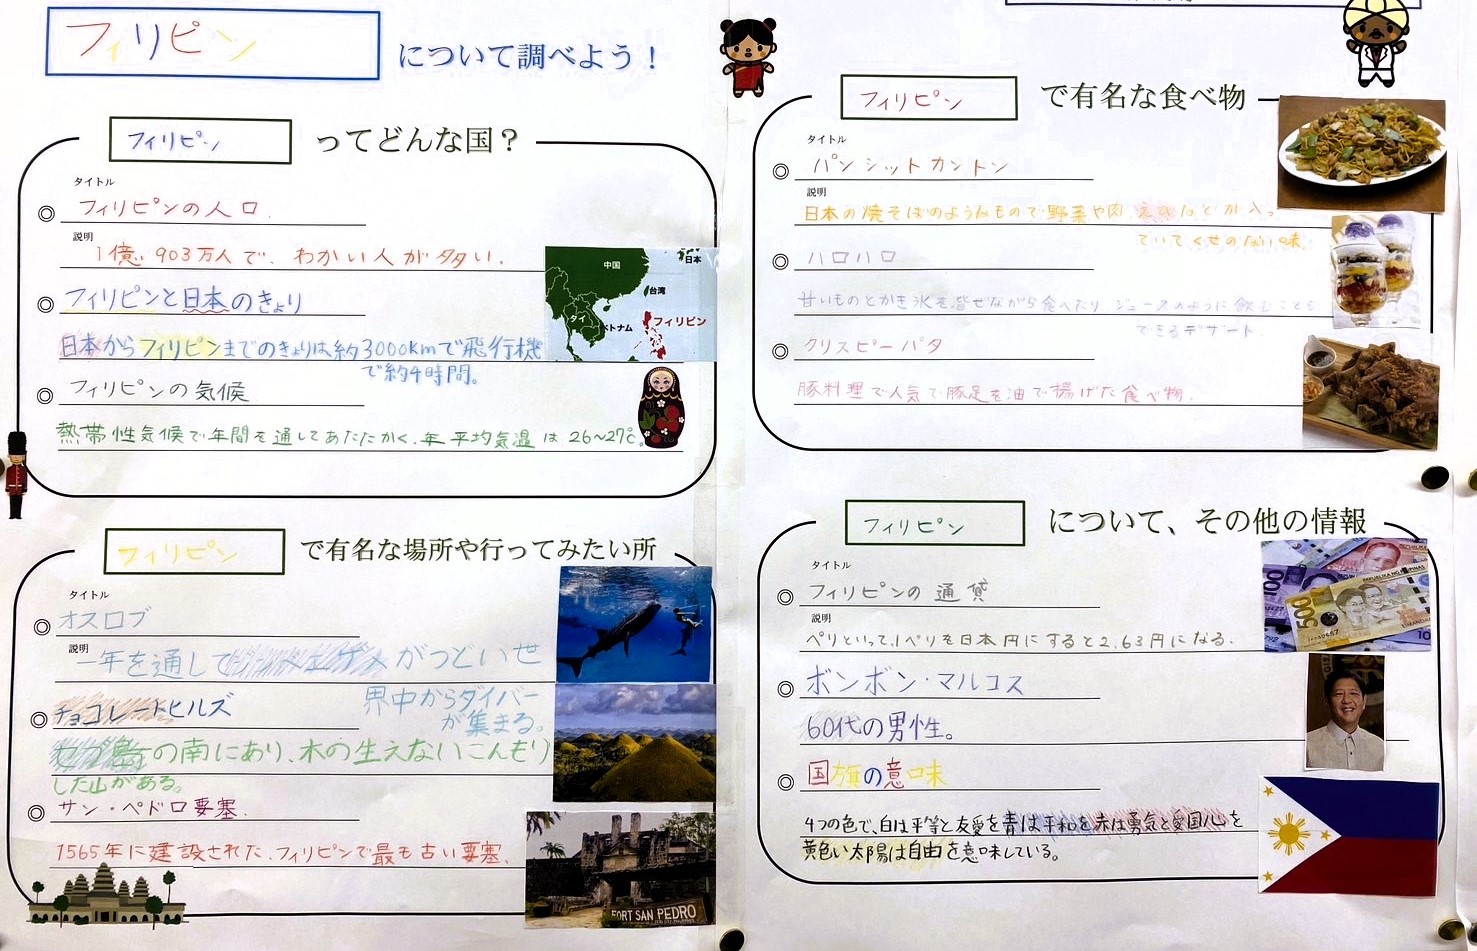 フィリピン について調べよう！
フィリピン ってどんな国？
タイトル
◎ フィリピンの人口.
説明
1億, 903万人で、わかい人が多い.
◎ フィリピンと日本のきょり
日本からフィリピンまでのきょりは約3000kmで飛行機
で約4時間。
◎ フィリピンの気候
熱帯性気候で年間を通してあたたかく、年平均気温は26〜27℃。
中国
日本
台湾
タイ
トナム
フィリピン
フィリピン で有名な場所や行ってみたい所
タイトル
◎ オスロブ
説明
一年を通して がつどい世
界中からダイバー
が集まる。
◎ チョコレートヒルズ
の南にあり、木の生えないこんもり
した山がある。
◎ サン・ペドロ要塞.
1565年に建設された、フィリピンで最も古い要塞.
FORT SAN PEDRO
フィリピン で有名な食べ物
タイトル
◎ パンシットカントン
説明
日本の焼そばのようなもので野菜や肉、えびなどが入っ
ていてくせのない味.
◎ ハロハロ
甘いものとかき氷を混ぜながら食べたり ジュースのように飲むことも
できるデザート.
◎ クリスピーパタ
豚料理で人気で豚足を油で揚げた食べ物.
フィリピン について、その他の情報
タイトル
◎ フィリピンの通貨
説明
ペリといって、1ペリを日本円にすると2.63円になる.
◎ ボンボン・マルコス
60代の男性。
◎ 国旗の意味
4つの色で、白は平等と友愛を青は平和を赤は勇気と愛国心を
黄色い太陽は自由を意味している。
500
100